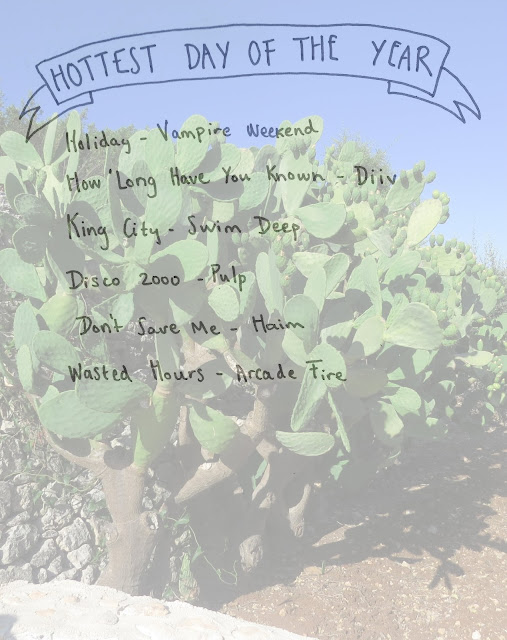 HOTTEST DAY OF THE YEAR
Holiday - Vampire Weekend
How Long Have You Known - Diiv
King City - Swim Deep
Disco 2000 - Pulp
Don't Save Me - Haim
Wasted Hours - Arcade Fire